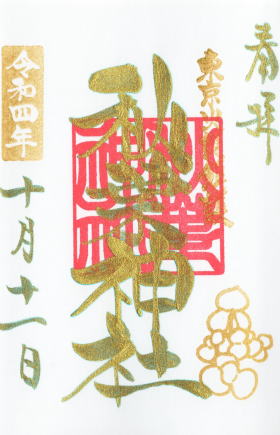 奉拝
東京
秋葉神社
令和四年
十月十一日